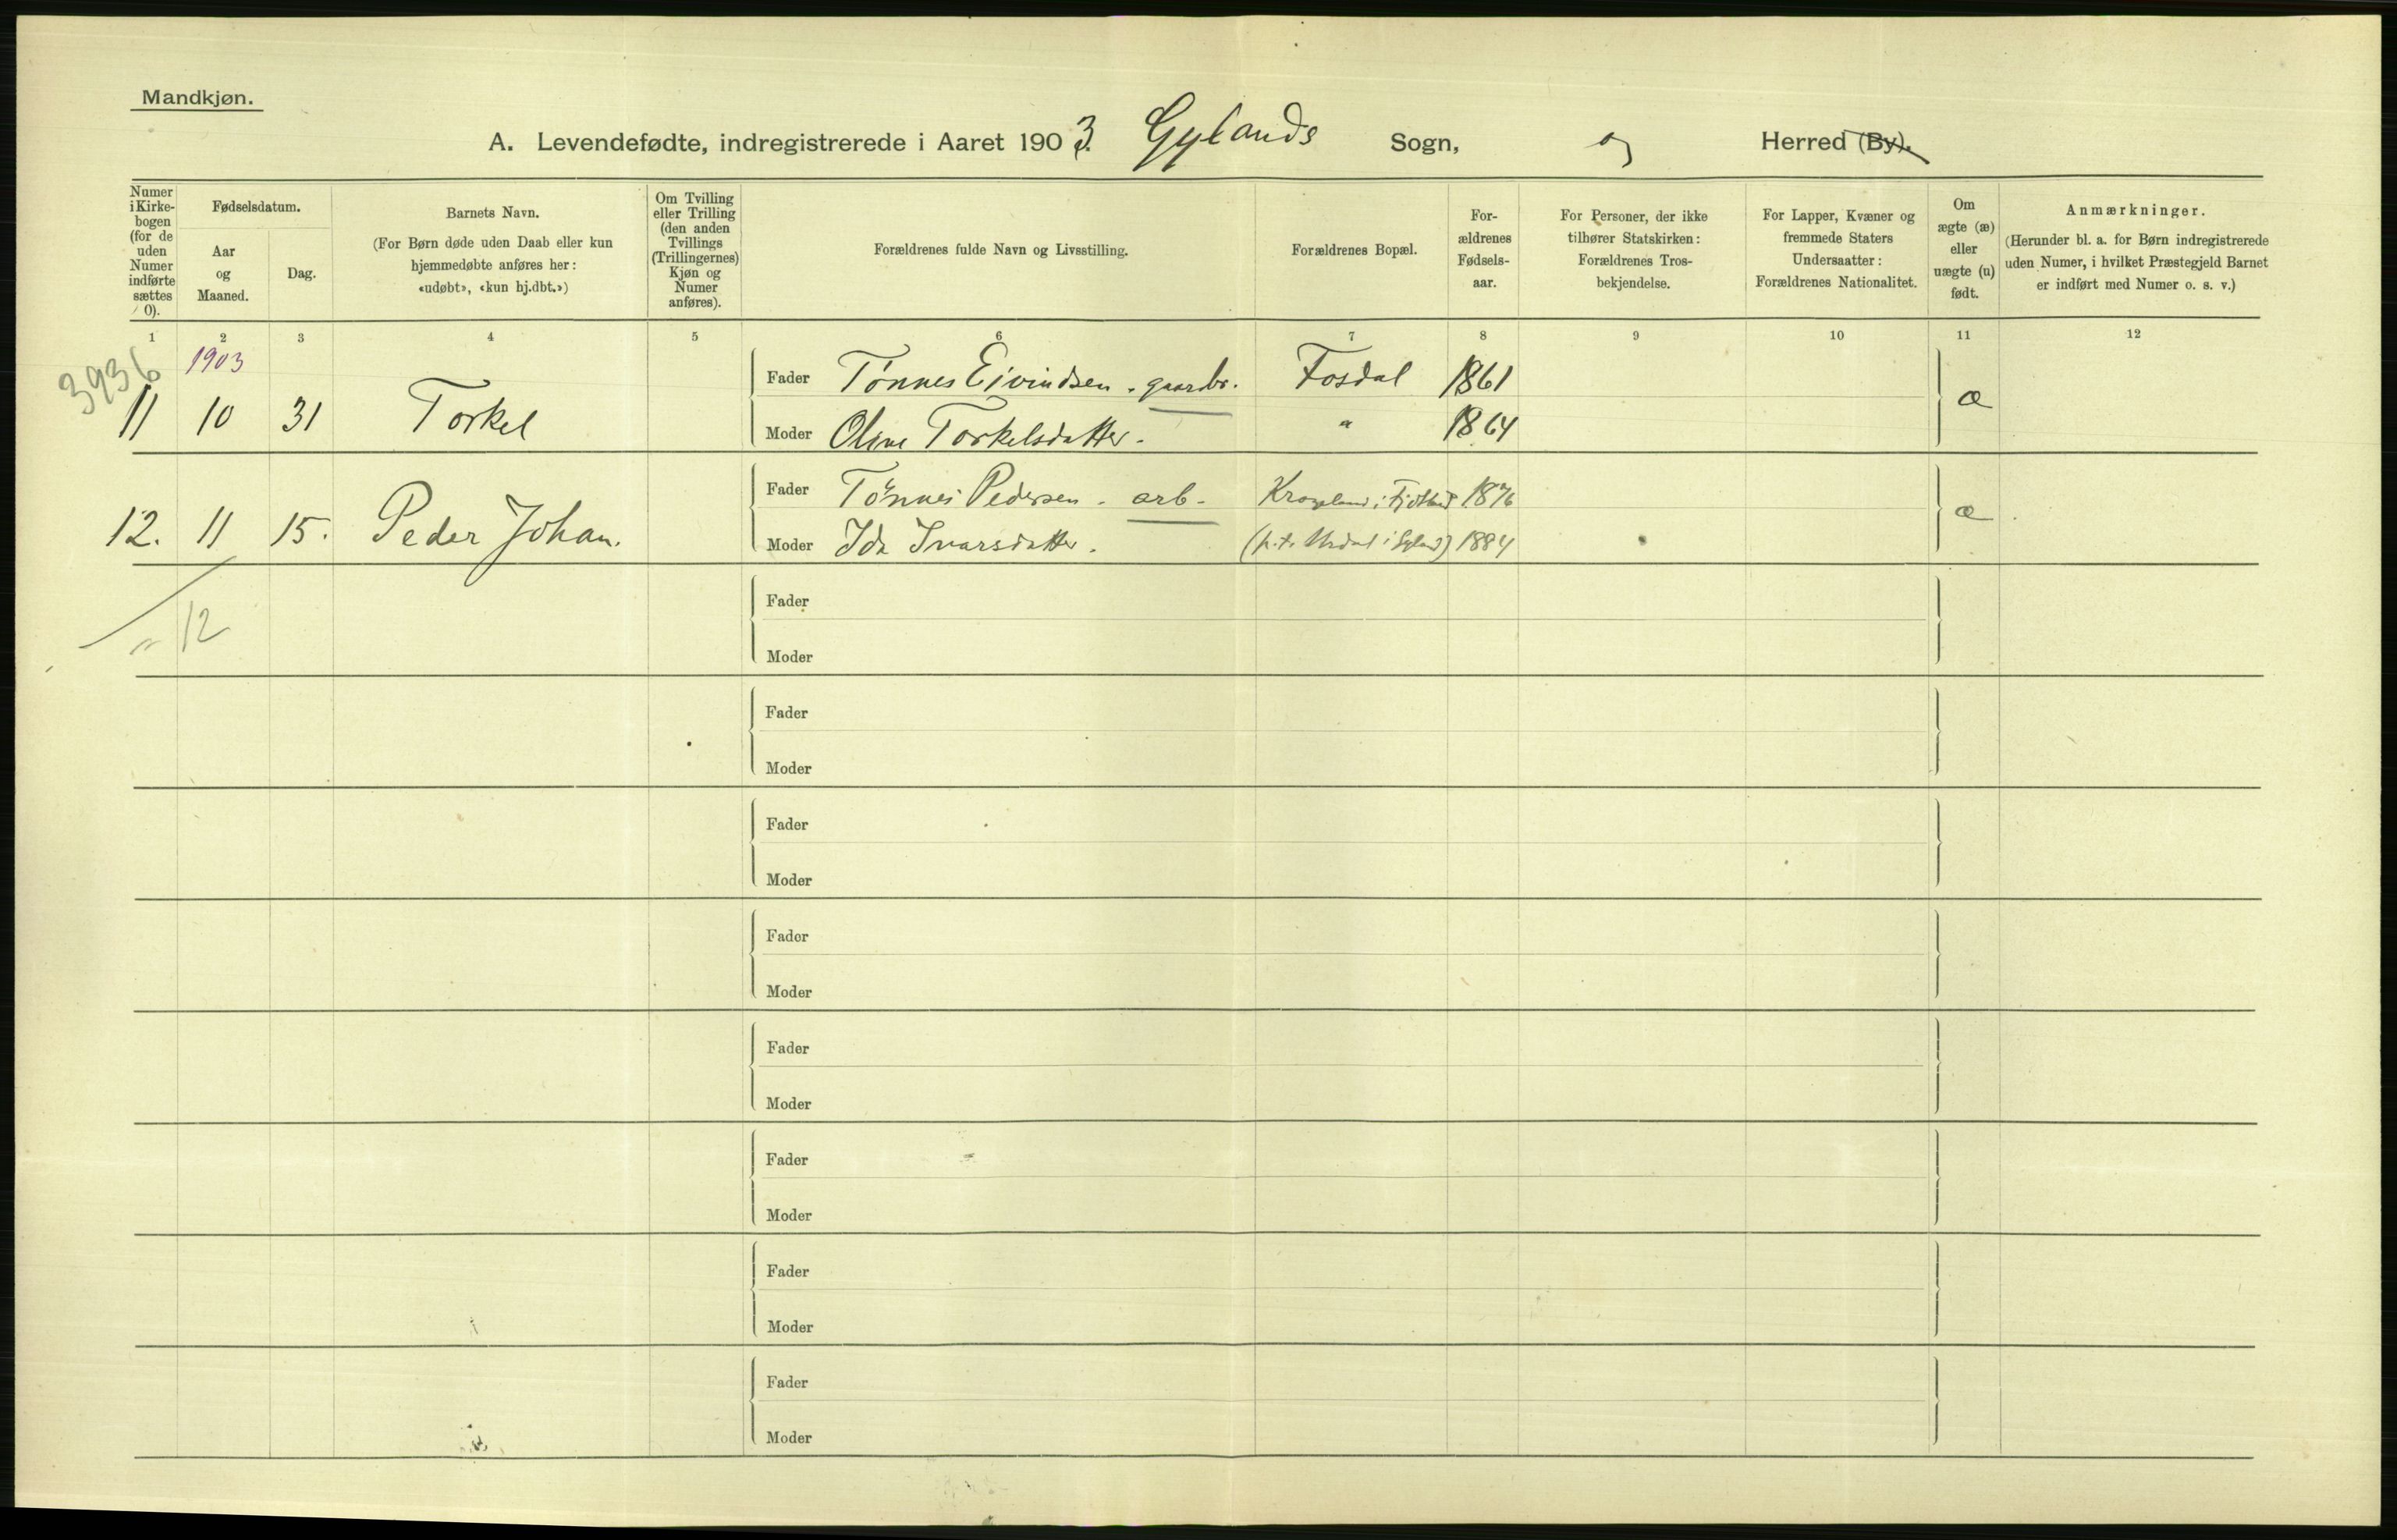 Mandkjøn.
A. Levendefødte, indregistrerede i Aaret 1903. Gylands Sogn, og Herred (By).
Numer i Kirke-bogen (for de uden Numer indførte sættes 0).
Fødselsdatum.
Aar og Maaned.
Dag.
Barnets Navn.
(For Børn døde uden Daab eller kun hjemmedøbte anføres her: «udøbt», «kun hj.dbt.»)
Om Tvilling eller Trilling (den anden Tvillings (Trillingernes) Kjøn og Numer anføres).
Forældrenes fulde Navn og Livsstilling.
Forældrenes Bopæl.
For-ældrenes Fødsels-aar.
For Personer, der ikke tilhører Statskirken: Forældrenes Tros-bekjendelse.
For Lapper, Kvæner og fremmede Staters Undersaatter: Forældrenes Nationalitet.
Om ægte (æ) eller uægte (u) født.
Anmærkninger.
(Herunder bl. a. for Børn indregistrerede uden Numer, i hvilket Præstegjeld Barnet er indført med Numer o. s. v.)
1 2 3 4 5 6 7 8 9 10 11 12
3936 1903
Fader Tønnes Eivindsen. gaardbr. Fosdal 1861
11 10 31 Torkel æ
Moder Oline Torkelsdatter. " 1864
Fader Tønnes Pedersen. arb. i Fjotland 1876
12. 11 15. Peder Johan. æ
Moder Ida Ivarsdatter. (p.t. i Gyland) 1884
Fader
" 12
Moder
Fader
Moder
Fader
Moder
Fader
Moder
Fader
Moder
Fader
Moder
Fader
Moder
Fader
Moder